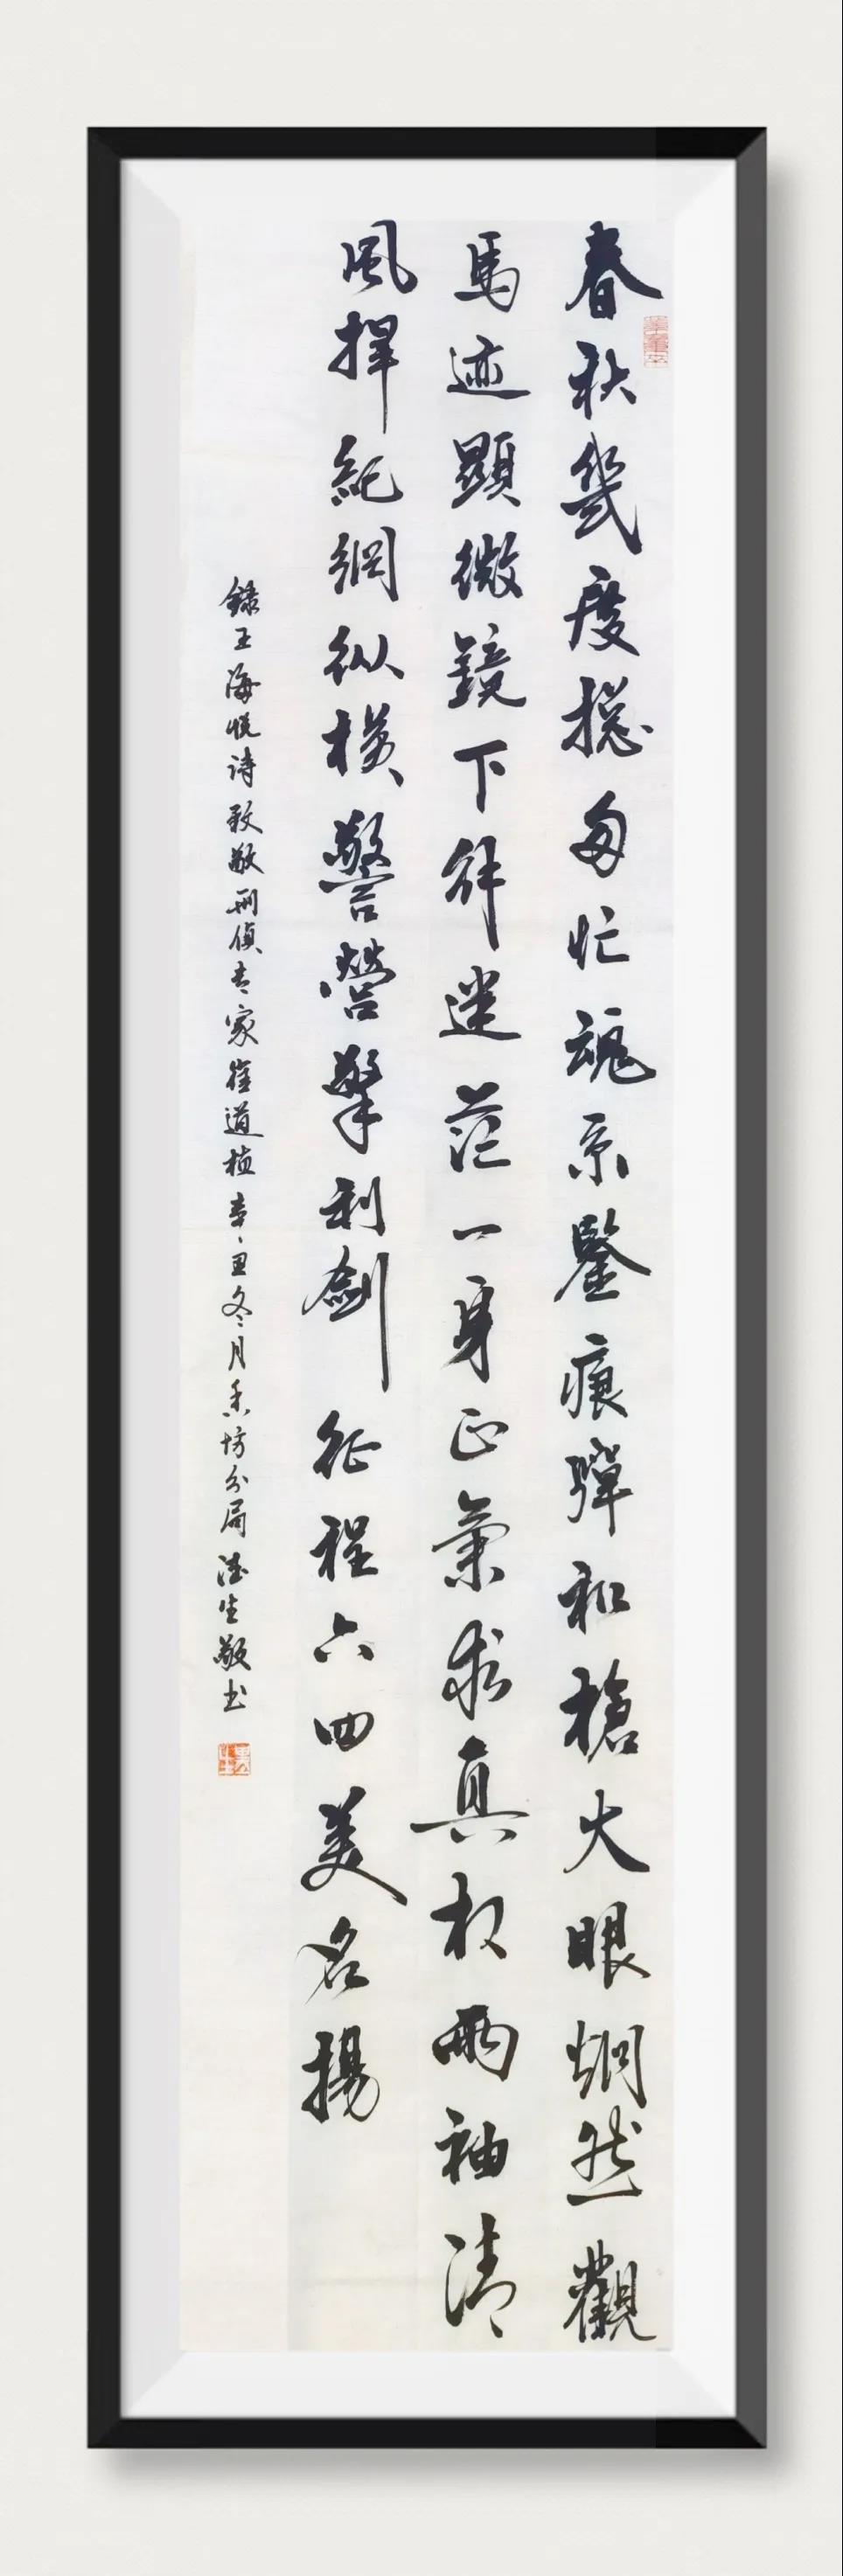 春秋幾度總匆忙魂系鑒痕彈和槍火眼炯然觀
馬迹顯微鏡下解迷茫一身正氣求真权兩袖清
風捍紀綱纵橫警營擎利劍征程六四美名揚
錄王海悦诗致敬刑偵专家崔道植辛丑冬月香坊分局生敬书